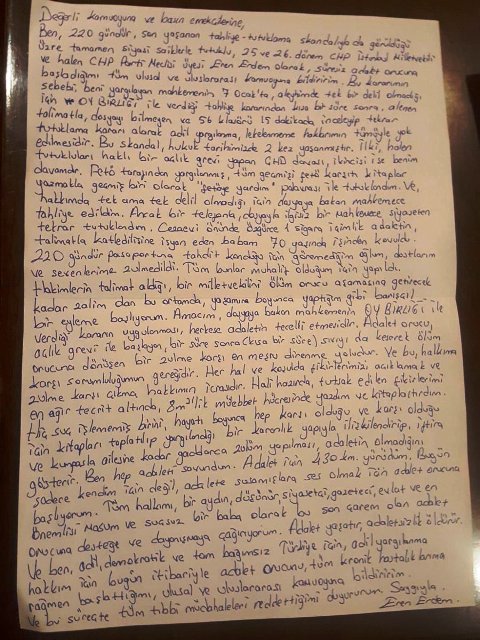 Değerli kamuoyuna ve basın emekçilerine,
Ben, 220 gündür, son yaşanan tahliye-tutuklama skandalıyla da görüldüğü
üzre tamamen siyasi saiklerle tutuklu, 25 ve 26. dönem CHP İstanbul Milletvekili
ve halen CHP Parti Meclisi üyesi Eren Erdem olarak, süresiz adalet orucuna
başladığımı tüm ulusal ve uluslararası kamuoyuna bildiririm. Bu kararımın
sebebi, beni yargılayan mahkemenin 7 Ocak'ta, aleyhimde tek bir delil olmadığı
için "OY BİRLİĞİ" ile verdiği tahliye kararından kısa bir süre sonra, alenen
talimatla, dosyayı bilmeyen ve 56 klasörü 15 dakikada inceleyip tekrar
tutuklama kararı alarak adil yargılanma, lekelenmeme hakkımın tümüyle yok
edilmesidir. Bu skandal, hukuk tarihimizde 2 kez yaşanmıştır. İlki, halen
tutukluları haklı bir açlık grevi yapan ÇHD davası, ikincisi ise benim
davamdır. Fetö tarafından yargılanmış, tüm geçmişi fetö karşıtı kitaplar
yazmakla geçmiş biri olarak "fetöye yardım" palavrası ile tutuklandım. Ve,
hakkımda tek ama tek delil olmadığı için dosyaya bakan mahkemece
tahliye edildim. Ancak bir telefonla, dosyayla ilgisiz bir mahkemece siyaseten
tekrar tutuklandım. Cezaevi önünde özgürce 1 sigara içimlik adaletin,
talimatla katledilişine isyan eden babam 70 yaşında işinden kovuldu.
220 gündür pasaportuna tahdit konduğu için göremediğim oğlum, dostlarım
ve sevenlerime zulmedildi. Tüm bunlar muhalif olduğum için yapıldı.
Hakimlerin talimat aldığı, bir milletvekilini ölüm orucu aşamasına getirecek
kadar zalim olan bu ortamda, yaşamım boyunca yaptığım gibi barışçıl
bir eyleme başlıyorum. Amacım, dosyaya bakan mahkemenin OY BİRLİĞİ ile
verdiği kararın uygulanması, herkese adaletin tecelli etmesidir. Adalet orucu,
açlık grevi ile başlayıp, bir süre sonra (kısa bir süre) sıvıyı da keserek ölüm
orucuna dönüşen bir zulme karşı en meşru direnme yoludur. Ve bu, halkıma
karşı sorumluluğumun gereğidir. Her hal ve koşulda fikirlerimizi açıklamak ve
zulme karşı çıkma, hakkımın icrasıdır. Hali hazırda, tutsak edilen fikirlerimi
en ağır tecrit altında, 8m²'lik müebbet hücresinde yazdım ve kitaplaştırdım.
Hiç suç işlememiş birini, hayatı boyunca hep karşı olduğu ve karşı olduğu
için kitapları toplatılıp yargılandığı bir karanlık yapıyla ilişkilendirip, iftira
ve kumpasla ailesine kadar gaddarca zulüm yapılması, adaletin olmadığını
gösterir. Ben hep adaleti savundum. Adalet için 430 km. yürüdüm. Bugün
sadece kendim için değil, adalete susamışlara ses olmak için adalet orucuna
başlıyorum. Tüm halkımı, bir aydın, düşünür, siyasetçi, gazeteci, evlat ve en
önemlisi masum ve suçsuz bir baba olarak bu son çarem olan adalet
orucuna desteğe ve dayanışmaya çağırıyorum. Adalet yaşatır, adaletsizlik öldürür.
Ve ben, adil, demokratik ve tam bağımsız Türkiye için, adil yargılanma
hakkım için bugün itibariyle adalet orucunu, tüm kronik hastalıklarıma
rağmen başlattığımı, ulusal ve uluslararası kamuoyuna bildiririm.
Ve bu süreçte tüm tıbbi müdahaleleri reddettiğimi duyururum. Saygıyla.
Eren Erdem.